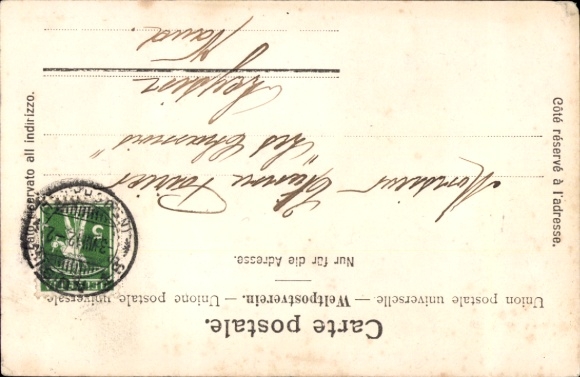 Carte postale.
Union postale universelle. — Weltpostverein. — Unione postale universale.
Nur für die Adresse.
Côté réservé à l'adresse.
Lato riservato all' indirizzo.
Monsieur
"Les Chamois"
Leysin
Vaud
5
HELVETIA